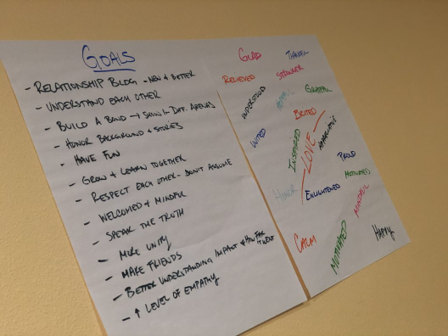 GOALS
- RELATIONSHIP BLDG - NEW & BETTER
- UNDERSTAND EACH OTHER
- BUILD A BOND →
- HONOR BACKGROUND & STORIES
- HAVE FUN
- GROW & LEARN TOGETHER
- RESPECT EACH OTHER - DON'T ASSUME
- WELCOMED & MINDFUL
- SPEAK THE TRUTH
- MORE UNITY
- MAKE FRIENDS
- BETTER UNDERSTANDING IMPACT &
- ↑ LEVEL OF EMPATHY
GLAD
THANKFUL
RENEWED
STRONGER
UNDERSTOOD
GRATEFUL
UNITED
EXCITED
INSPIRED
LOVE
PROUD
MOTIVATED
ENLIGHTENED
CALM
MOTIVATED
HAPPY